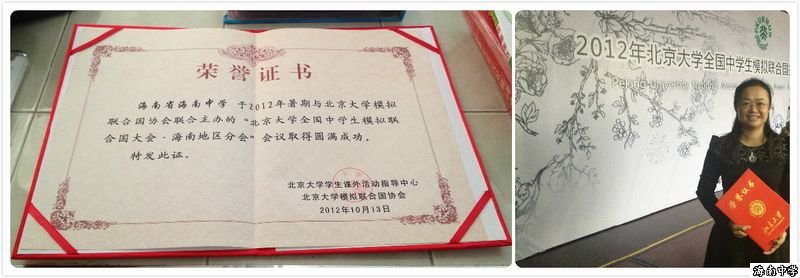 荣誉证书
海南省海南中学 于2012年暑期与北京大学模拟
联合国协会联合主办的“北京大学全国中学生模拟联
合国大会·海南地区分会”会议取得圆满成功。
特发此证。
北京大学学生课外活动指导中心
北京大学模拟联合国协会
2012年10月13日
2012年北京大学全国中学生模拟联合国
Peking University National Model
荣誉证书
北京大学
海南中学